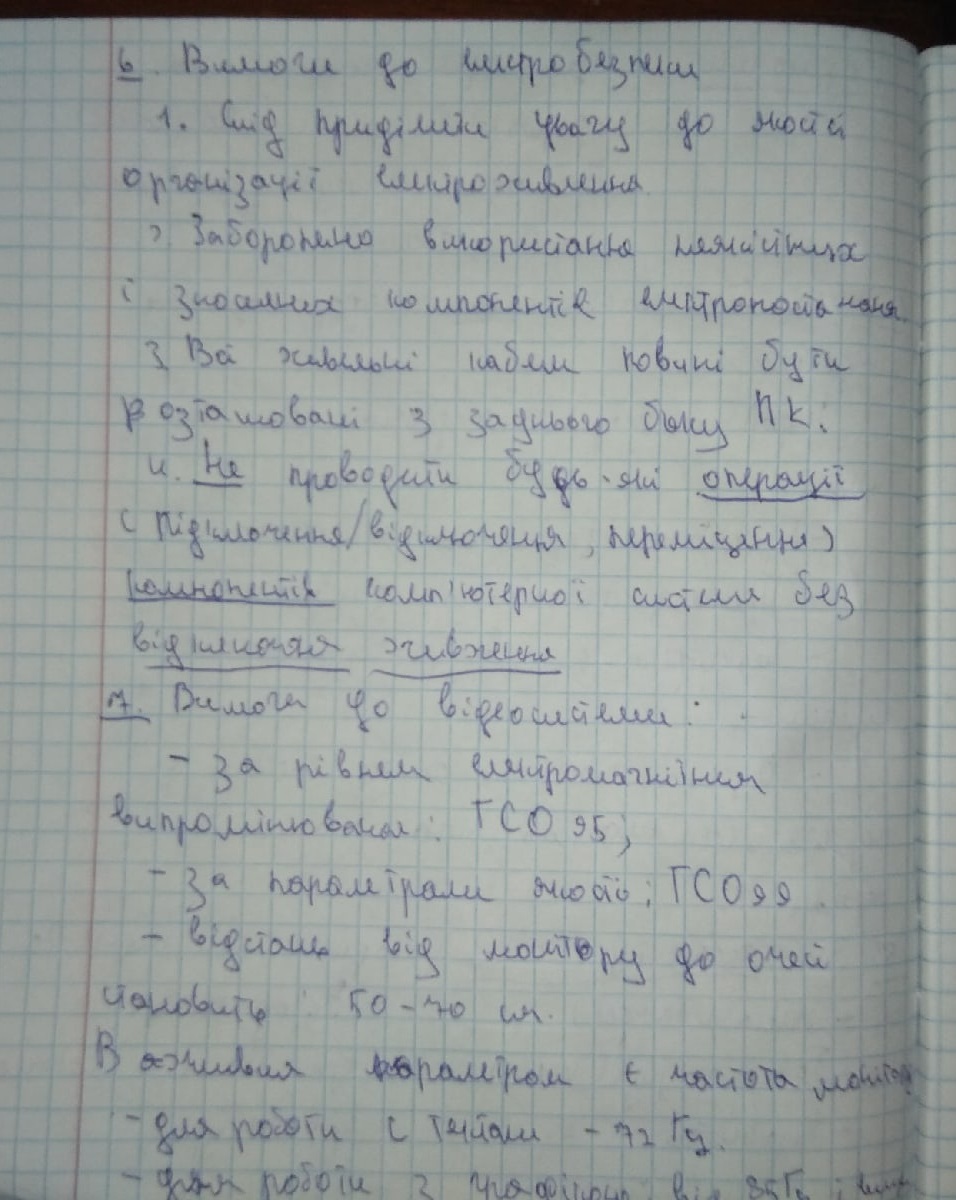 6. Вимоги до електробезпеки
1. Слід приділити увагу до якості
організації електроживлення
2 Заборонено використання неякісних
і зношених компонентів електропостачання
3 Всі живильні кабелі повині бути
розташовані з заднього боку ПК.
4. Не проводити будь-які операції
(підключення/відключення, переміщення)
компонентів комп'ютерної системи без
відключення живлення
7. Вимоги до відеосистеми:
- за рівнем електромагнітним
випромінювання: ТСО 95;
- За параметрами якості: ТСО99.
- відстань від монітору до очей
становить 50-70 см.
Важливим параметром є частота монітору
- для роботи с текстами - 72 Гц.
- для роботи з графікою від 85Гц і